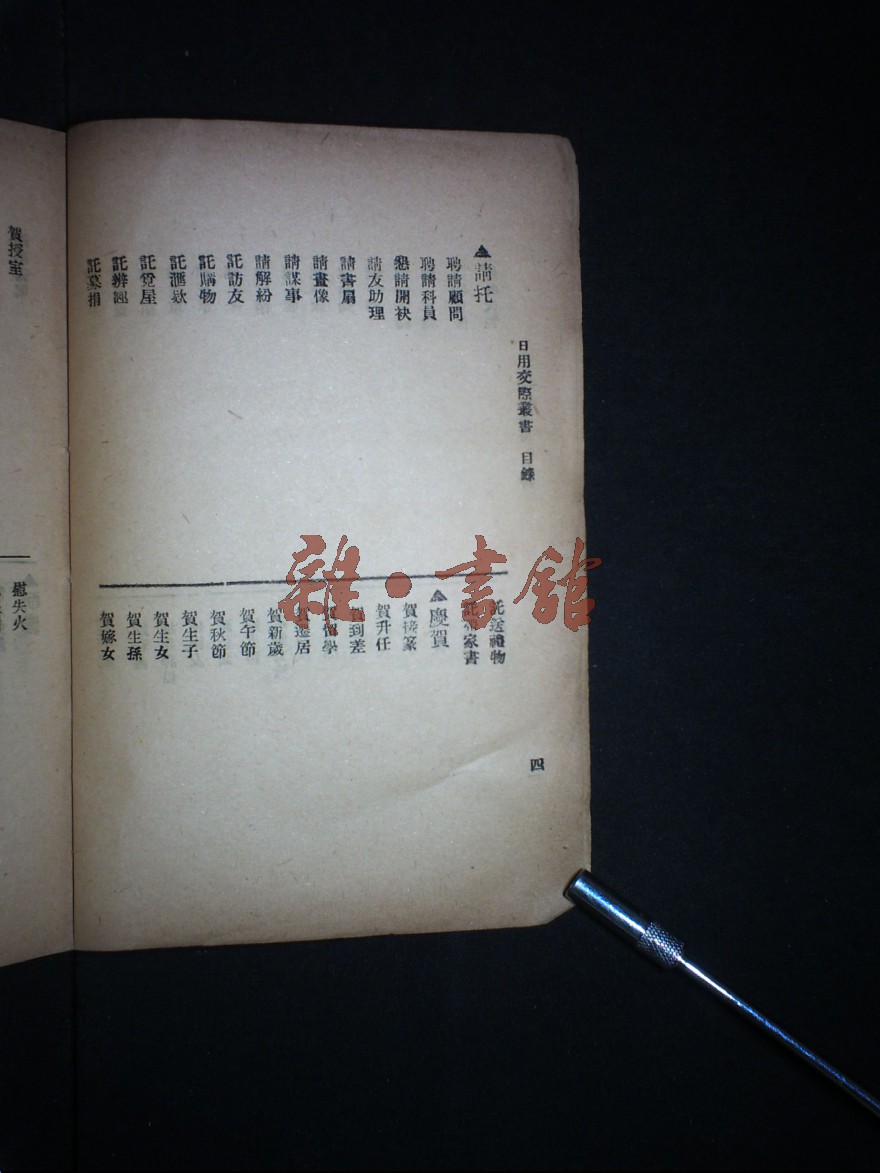 日用交際叢書 目錄
四
▲請托
聘請顧問
聘請科員
懇請開袂
請友助理
請書扇
請畫像
請謀事
請解紛
託訪友
託購物
託滙欵
託覓屋
託辦
託募捐
託送禮物
託帶家書
▲慶賀
賀接篆
賀升任
賀到差
賀留學
賀遷居
賀新歲
賀午節
賀秋節
賀生子
賀生女
賀生孫
賀嫁女
賀授室
慰失火
雜·書館